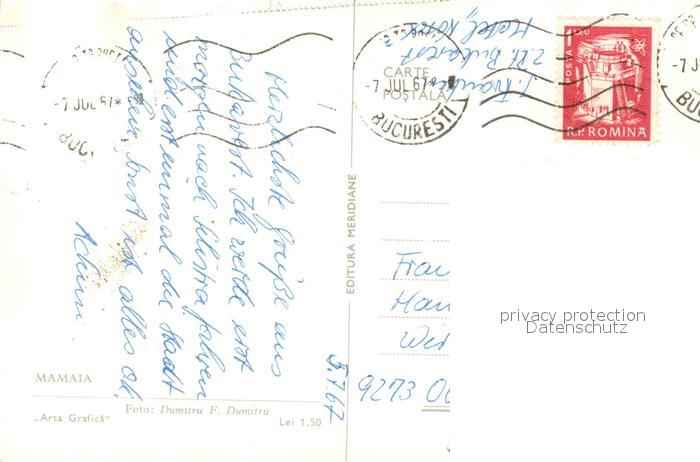 Herzlichste Grüße aus
Bukarest. Ich werde erst
morgen nach Silistra fahren
und erst einmal die Stadt
ansehen, sonst ist alles ok.
Achim
5.7.67
MAMAIA
„Arta Grafică“
Foto: Dumitru F. Dumitru
Lei 1,50
EDITURA MERIDIANE
CARTE
POSTALĂ
Z. Zt. Bukarest
Hotel
-7 JUL 67*
BUCUREȘTI
-7 JUL 67*
BUC
-7 J
1 LEU
POSTA
R.P. ROMINA
Frau
Han
Wit
9273 O
privacy protection
Datenschutz